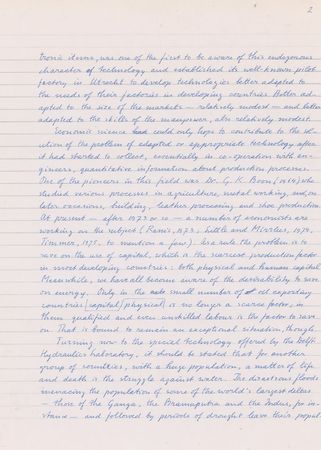 2
tronic items, was one of the first to be aware of this endogenous
character of technology and established its well-known pilot
factory in Utrecht to develop technologies better adapted to
the needs of their factories in developing countries. Better ad-
apted to the size of the markets – relatively modest – and better
adapted to the skills of the manpower, also relatively modest.
Economic science could only hope to contribute to the so-
lution of the problem of adapted or appropriate technology after
it had started to collect, essentially in co-operation with en-
gineers, quantitative information about production processes.
One of the pioneers in this field was Dr. G. K. Boon (1964) who
studied various processes in agriculture, metal working, and, on
later occasions, building, leather processing and shoe production.
At present – after 1973 or so – a number of economists are
working on the subject (Ranis, 1973, Little and Mirrlees, 1974,
Timmer, 1975, to mention a few). As a rule the problem is to
save on the use of capital, which is the scarcest production factor
in most developing countries: both physical and human capital.
Meanwhile, we have all become aware of the desirability to save
on energy. Only in the small number of oil exporting
countries (capital) physical is no longer a scarce factor; in
them qualified and even unskilled labour is the factor to save
on. That is bound to remain an exceptional situation, though.
Turning now to the special technology offered by the Delft
Hydraulics Laboratory, it should be stated that for another
group of countries, with a huge population, a matter of life
and death is the struggle against water. The disastrous floods
menacing the population of some of the world's largest deltas
– those of the Ganga, the Bramaputra and the Indus, for in-
stance – and followed by periods of drought leave their popul-